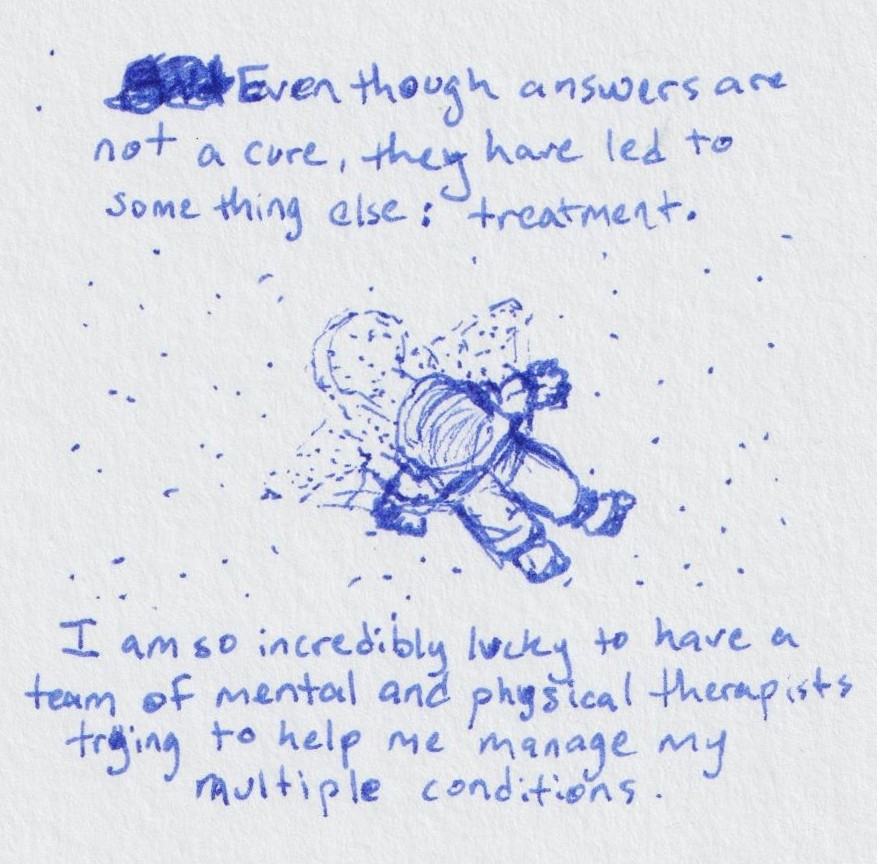 Even though answers are
not a cure, they have led to
something else: treatment.
I am so incredibly lucky to have a
team of mental and physical therapists
trying to help me manage my
multiple conditions.